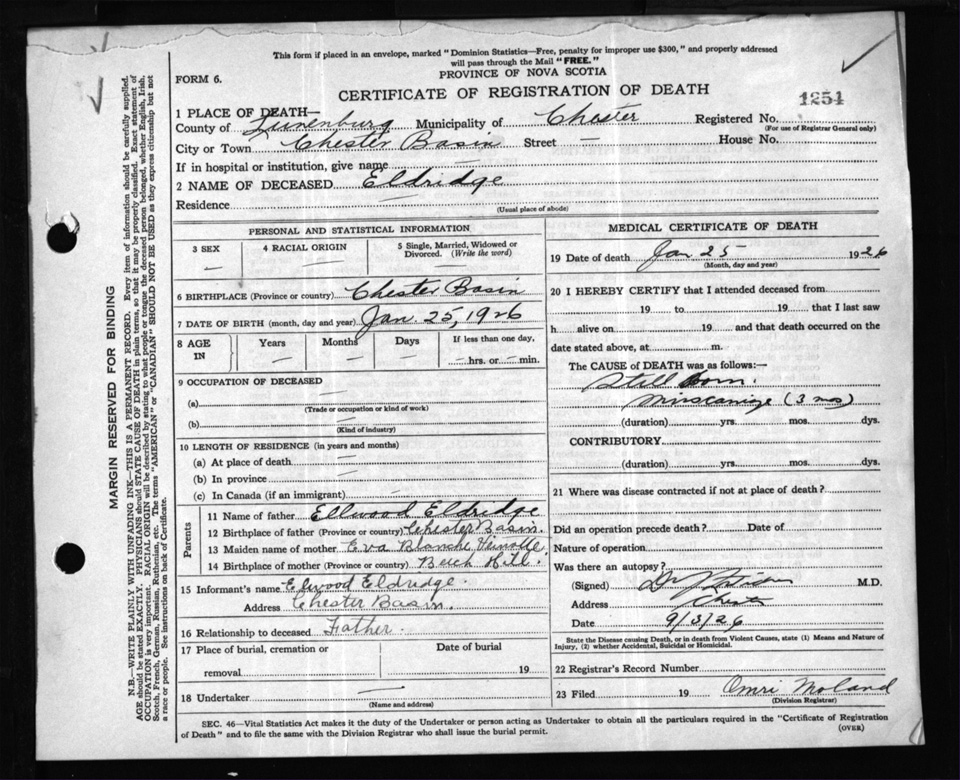 This form if placed in an envelope, marked "Dominion Statistics—Free, penalty for improper use $300," and properly addressed
will pass through the Mail "FREE."
FORM 6.
PROVINCE OF NOVA SCOTIA
CERTIFICATE OF REGISTRATION OF DEATH
1254
1 PLACE OF DEATH—
County of Lunenburg Municipality of Chester Registered No.
(For use of Registrar General only)
City or Town Chester Basin Street House No.
If in hospital or institution, give name
2 NAME OF DECEASED Eldridge
Residence
(Usual place of abode)
PERSONAL AND STATISTICAL INFORMATION
3 SEX 4 RACIAL ORIGIN 5 Single, Married, Widowed or
Divorced. (Write the word)
— — —
6 BIRTHPLACE (Province or country) Chester Basin
7 DATE OF BIRTH (month, day and year) Jan. 25, 1926
8 AGE IN Years Months Days If less than one day,
— — — — hrs. or — min.
9 OCCUPATION OF DECEASED
(a) —
(Trade or occupation or kind of work)
(b) —
(Kind of industry)
10 LENGTH OF RESIDENCE (in years and months)
(a) At place of death —
(b) In province —
(c) In Canada (if an immigrant) —
Parents
11 Name of father Ellwood Eldridge
12 Birthplace of father (Province or country) Chester Basin.
13 Maiden name of mother Eva Blanche
14 Birthplace of mother (Province or country) Beech Hill.
15 Informant's name Elwood Eldridge.
Address Chester Basin.
16 Relationship to deceased Father.
17 Place of burial, cremation or Date of burial
removal 19
18 Undertaker —
(Name and address)
MEDICAL CERTIFICATE OF DEATH
19 Date of death Jan 25 1926
(Month, day and year)
20 I HEREBY CERTIFY that I attended deceased from
19 to 19 that I last saw
h alive on 19 and that death occurred on the
date stated above, at m.
The CAUSE OF DEATH was as follows:—
Still born.
Misscarriage (3 mos)
(duration) yrs. mos. dys.
CONTRIBUTORY
(duration) yrs. mos. dys.
21 Where was disease contracted if not at place of death?
Did an operation precede death? Date of
Nature of operation
Was there an autopsy?
(Signed) M.D.
Address Chester
Date 9/3/26
State the Disease causing Death, or in death from Violent Causes, state (1) Means and Nature of
Injury, (2) whether Accidental, Suicidal or Homicidal.
22 Registrar's Record Number
23 Filed 19 Omri Noland
(Division Registrar)
SEC. 46—Vital Statistics Act makes it the duty of the Undertaker or person acting as Undertaker to obtain all the particulars required in the "Certificate of Registration
of Death" and to file the same with the Division Registrar who shall issue the burial permit.
(OVER)
MARGIN RESERVED FOR BINDING
N.B.—WRITE PLAINLY WITH UNFADING INK—THIS IS A PERMANENT RECORD. Every item of information should be carefully supplied.
AGE should be stated EXACTLY. PHYSICIANS should STATE CAUSE OF DEATH in plain terms, so that it may be properly classified. Exact statement of
OCCUPATION is very important. RACIAL ORIGIN will be described by stating to what people or tongue the deceased person belonged, whether English, Irish,
Scotch, French, German, Russian, Ruthenian, etc. The terms "AMERICAN" or "CANADIAN" SHOULD NOT BE USED as they express citizenship but not
a race or people. See instructions on back of Certificate.